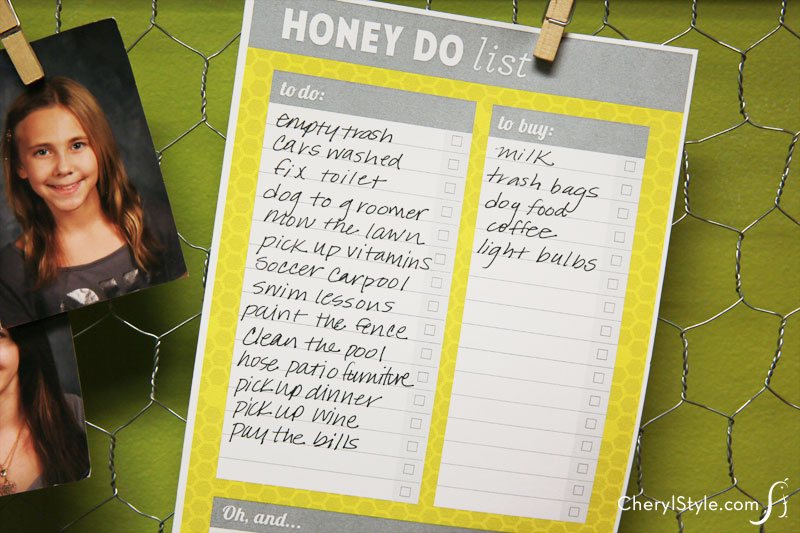 HONEY DO list
to do:
empty trash
cars washed
fix toilet
dog to groomer
mow the lawn
pick up vitamins
soccer carpool
swim lessons
paint the fence
clean the pool
hose patio furniture
pick up dinner
pick up wine
pay the bills
to buy:
milk
trash bags
dog food
coffee
light bulbs
Oh, and...
CherylStyle.com